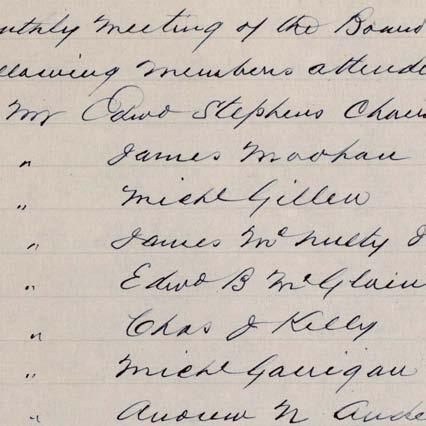 nthly Meeting of the Board
llowing Members attende
Mr Edwd Stephens Chair
" James Moohan
" Michl Gillen
" James McNulty J
" Edwd B McGloin
" Chas J Kelly
" Michl Garrigan
" Andrew N Ande